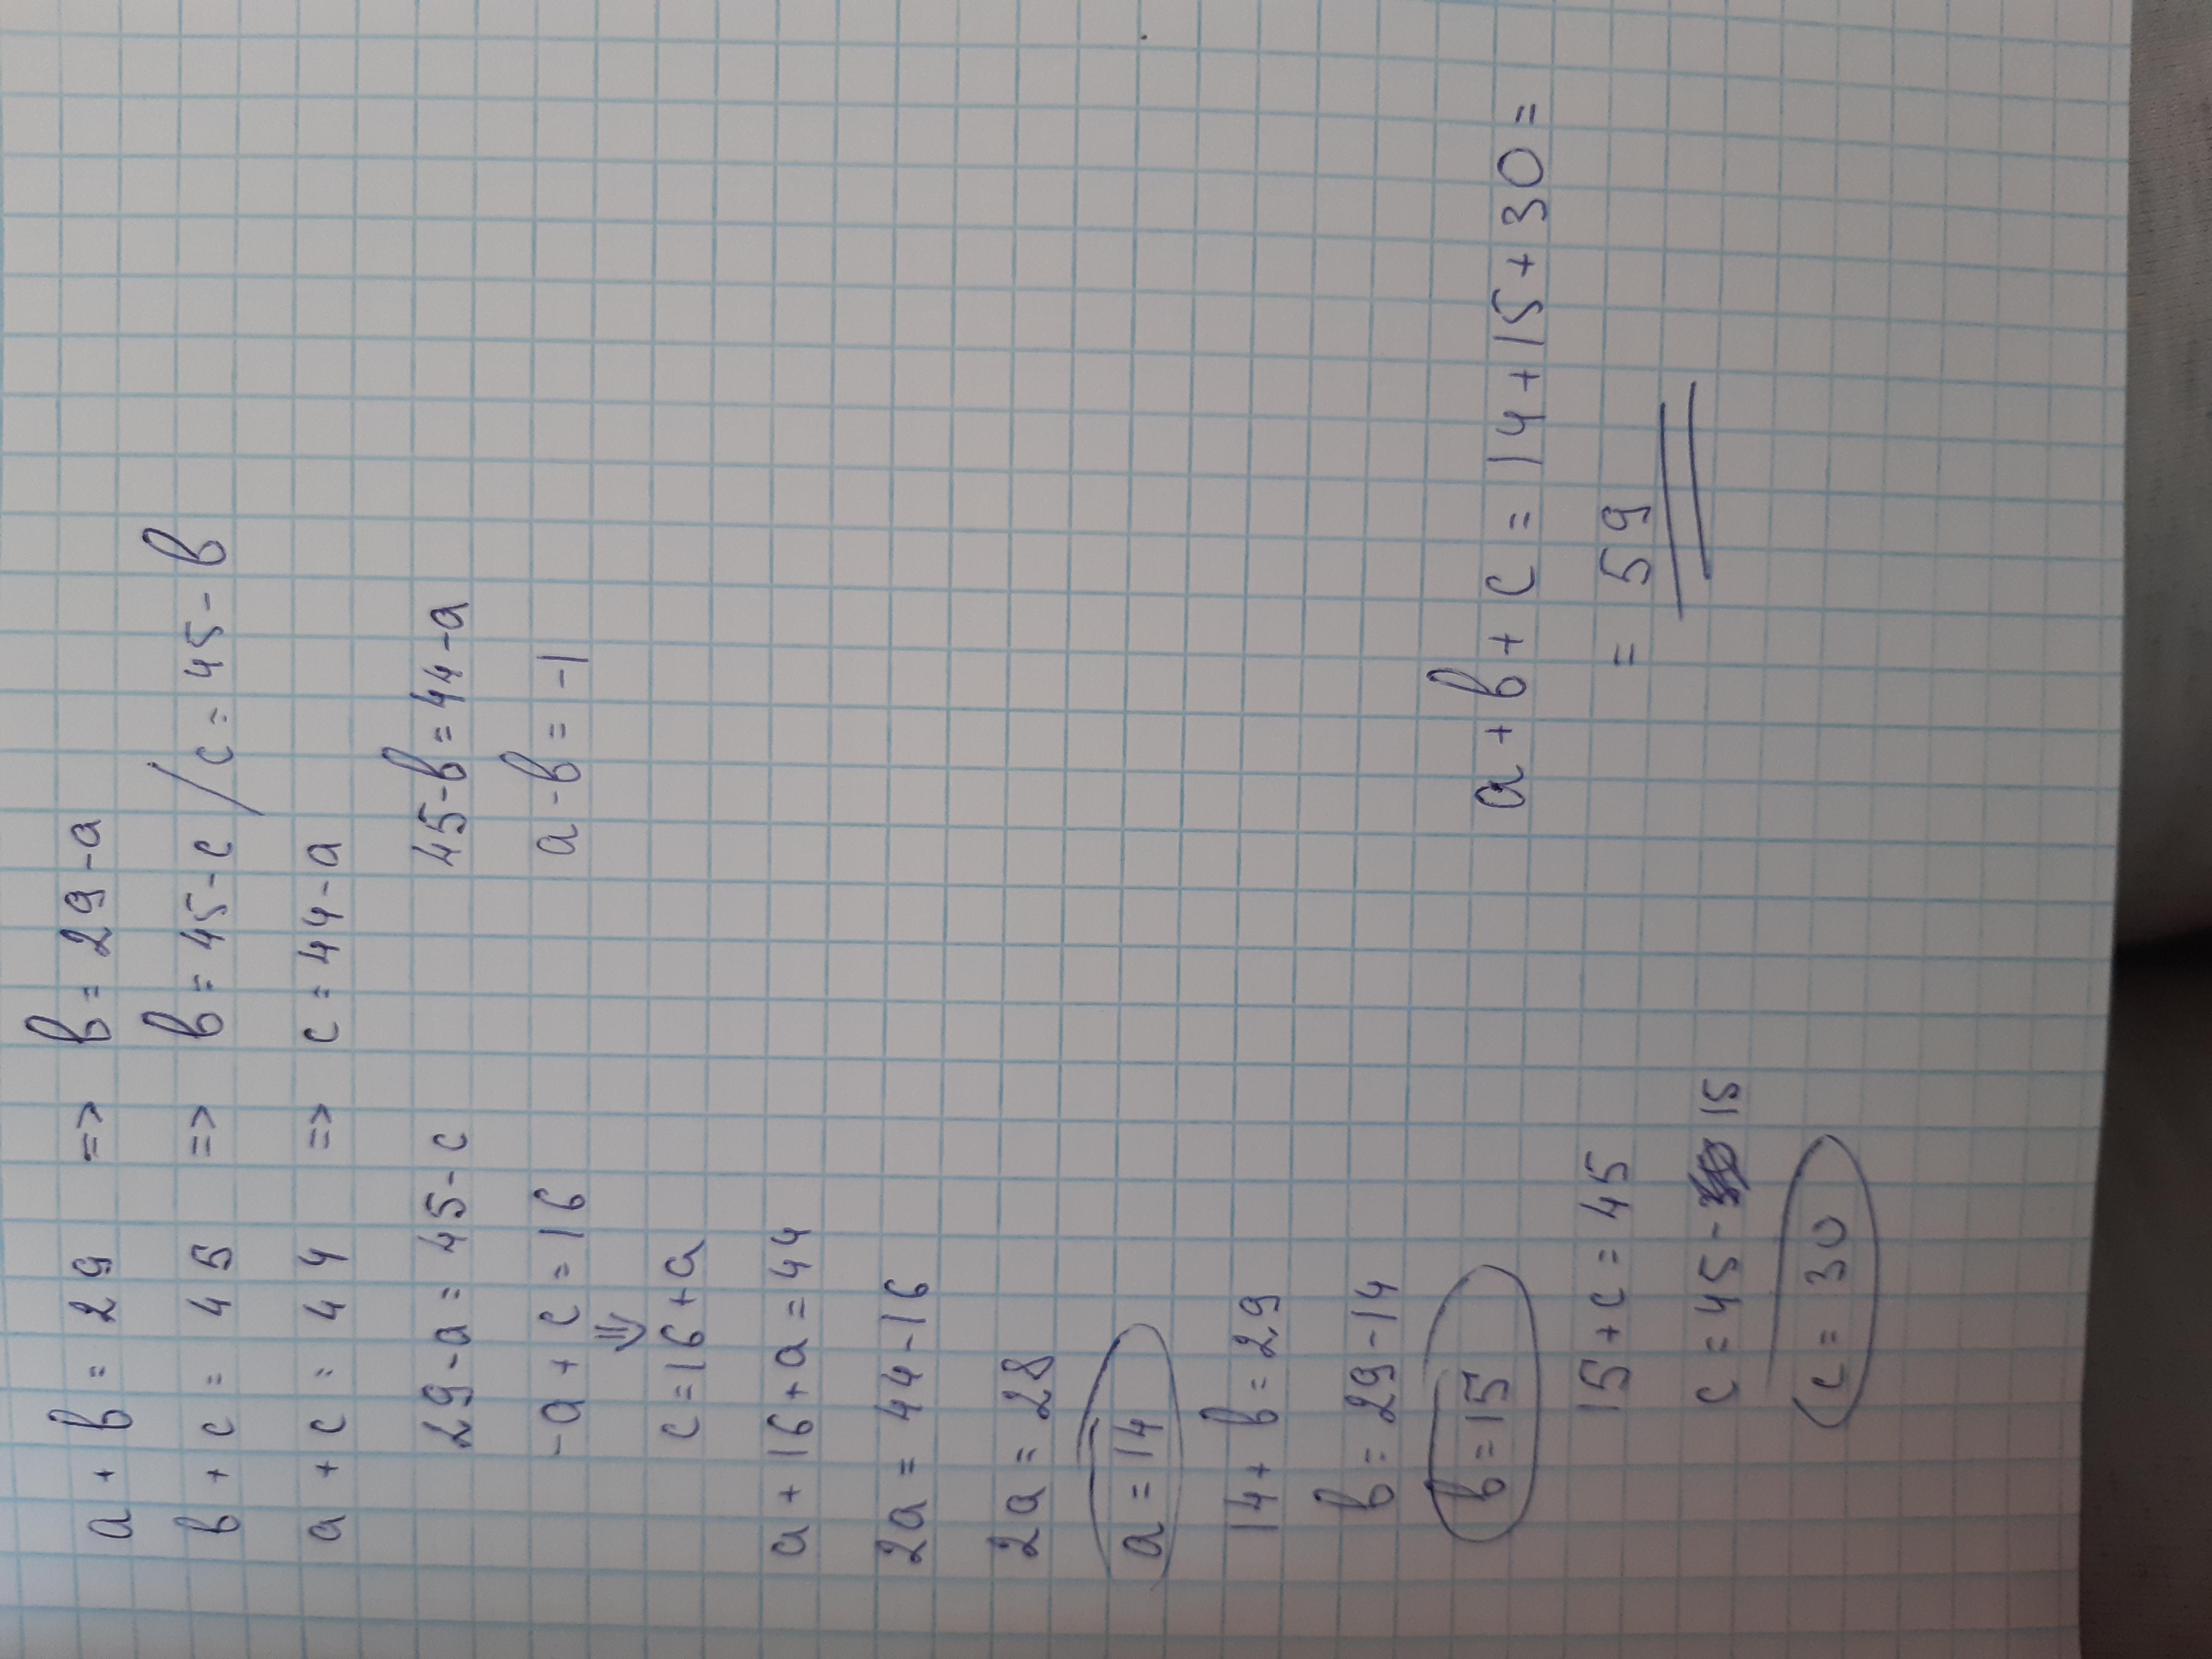 a + b = 29 => b = 29 - a
b + c = 45 => b = 45 - c / c = 45 - b
a + c = 44 => c = 44 - a
29 - a = 45 - c 45 - b = 44 - a
-a + c = 16 a - b = -1
⇓
c = 16 + a
a + 16 + a = 44
2a = 44 - 16
2a = 28
a = 14
14 + b = 29
b = 29 - 14
b = 15
a + b + c = 14 + 15 + 30 =
= 59
15 + c = 45
c = 45 - 15
c = 30